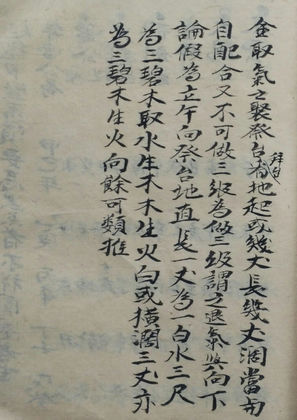 金取氣之聚祭台拜台地起或幾丈長幾丈濶當
自配合又不可做三級為做三級謂之退氣向下
論假為立午向祭台地直長一丈為一白水三尺
為三碧木取水生木木生火向或橫濶三丈亦
為三碧木生火向餘可類推